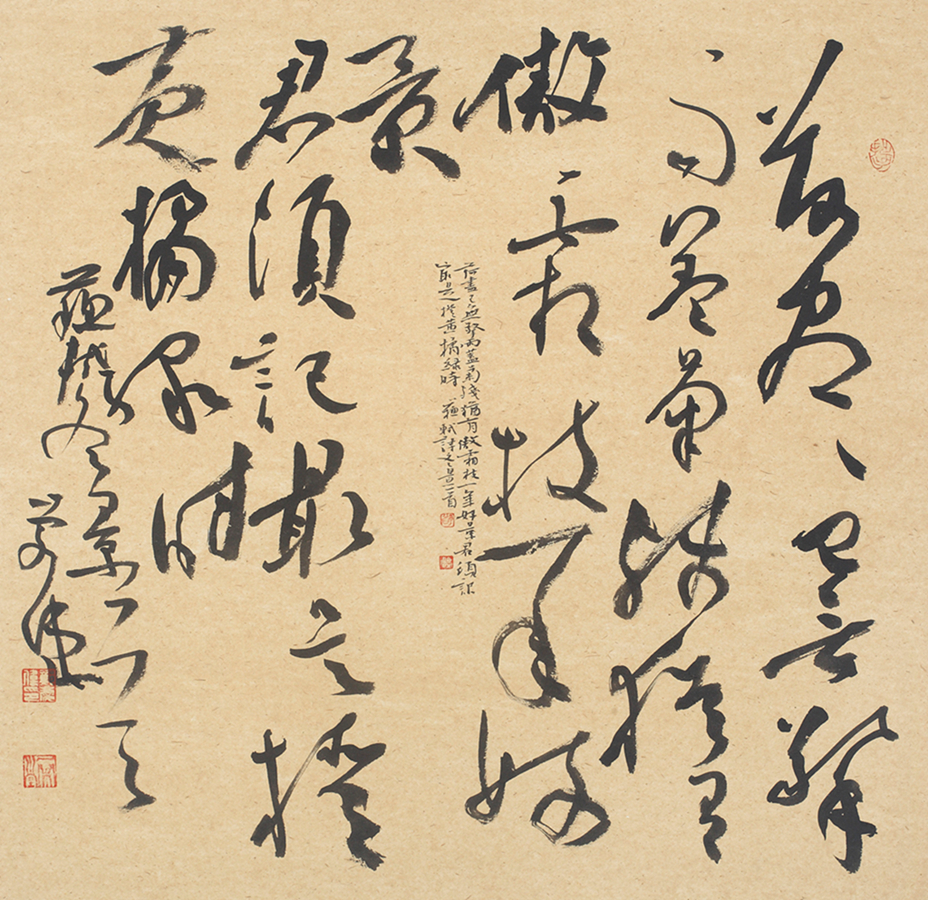 荷盡已無擎
雨蓋菊殘猶有
傲霜枝一年好
景
君須記最是橙
黃橘綠時
蘇軾冬景一首
荷盡已無擎雨蓋菊殘猶有傲霜枝一年好景君須記
最是橙黃橘綠時 蘇軾詩冬景一首